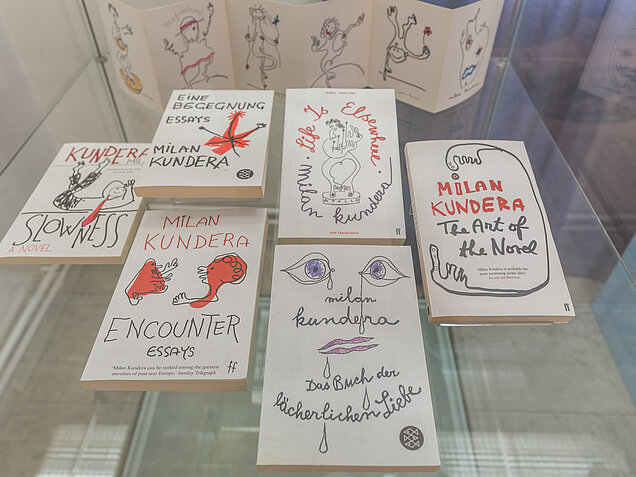 EINE
BEGEGNUNG
ESSAYS
MILAN
KUNDERA
Life Is Elsewhere
milan kundera
APOLLO
NEW TRANSLATION
ff
KUNDERA
MIL
SLOWNESS
A NOVEL
MILAN
KUNDERA
The Art of
the Novel
'Milan Kundera is probably the
most interesting writer alive.'
ALAIN DE BOTTON
ff
MILAN
KUNDERA
ENCOUNTER
ESSAYS
'Milan Kundera can be ranked among the greatest
novelists of post-war Europe.' Sunday Telegraph
ff
milan
kundera
Das Buch der
lächerlichen Liebe